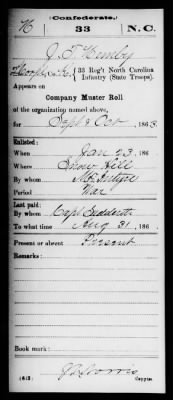 (Confederate.)
K 33 N.C.
J. T.
33 Reg't North Carolina
Infantry (State Troops).
Appears on
Company Muster Roll
of the organization named above,
for Sept & Oct, 1863.
Enlisted:
When Jan 23, 186
Where Snow Hill
By whom McIntyre
Period War
Last paid:
By whom Capt
To what time Aug 31, 186
Present or absent Present
Remarks:
Book mark:
(642)
Copyist.